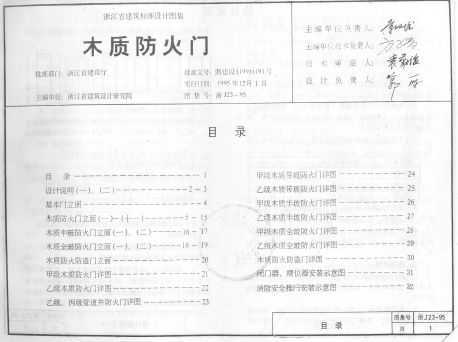 浙江省建筑标准设计图集
木质防火门
批准部门：浙江省建设厅
主编单位：浙江省建筑设计研究院
实行日期：1995年12月1日
图集号：浙J23-95
主编单位负责人：
主编单位技术负责人：
技术审定人：
设计负责人：
目录
目录 1
设计说明(一)、(二) 2-3
基本门立面 4
木质防火门立面(一)-(十一) 5-15
木质半玻防火门立面(一)、(二) 16-17
木质全玻防火门立面(一)、(二) 18-19
木质防火防盗门立面 20
甲级木质防火门详图 21
乙级木质防火门详图 22
乙级、丙级管道井防火门详图 23
甲级木质带玻防火门详图 24
乙级木质带玻防火门详图 25
甲级木质半玻防火门详图 26
乙级木质半玻防火门详图 27
甲级木质全玻防火门详图 28
乙级木质全玻防火门详图 29
木质防火防盗门详图 30
闭门器、顺位器安装示意图 31
消防安全推杠安装示意图 32
目录
图集号 浙J23-95
页 1